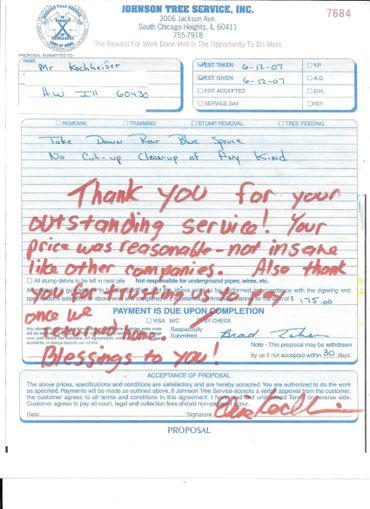 JOHNSON TREE SERVICE, INC.
7684
3006 Jackson Ave.
South Chicago Heights, IL 60411
755-7918
The Reward For Work Done Well Is The Opportunity To Do More
PROPOSAL SUBMITTED TO:
NAME
Mr Kochheiser
H.W Ill 60430
EST TAKEN 6-12-07
EST GIVEN 6-12-07
EST ACCEPTED
SERVICE DAY
Y.P.
A.D.
D.H.
REF.
REMOVAL TRIMMING STUMP REMOVAL TREE FEEDING
Take Down Rear Blue Spruce
No Cut-up Cleanup of Any Kind
Thank you for your
outstanding service! Your
price was reasonable - not insane
like other companies. Also thank
you for trusting us to pay
once we
returned home.
Blessings to you!
All stump debris to be left in neat pile Not responsible for underground pipes, wires, etc.
175.00
PAYMENT IS DUE UPON COMPLETION
VISA M/C BY CHECK
Respectfully
Submitted
Note - This proposal may be withdrawn
by us if not accepted within 30 days.
ACCEPTANCE OF PROPOSAL
The above prices, specifications and conditions are satisfactory and are hereby accepted. You are authorized to do the work
as specified. Payments will be made as outlined above. If Johnson Tree Service accepts a verbal approval from the customer,
the customer agrees to all terms and conditions in this agreement. I have read and understand Terms on reverse side.
Customer agrees to pay all court, legal and collection fees should non-payment occur.
Date
Signature
PROPOSAL